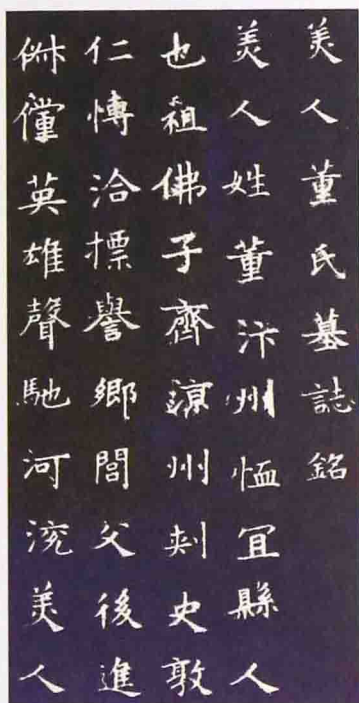 美人董氏墓誌銘
美人姓董汴州恤宜縣人
也祖佛子齊涼州刾史敦
仁博洽摽譽鄉閭父後進
俶儻英雄聲馳河兗美人